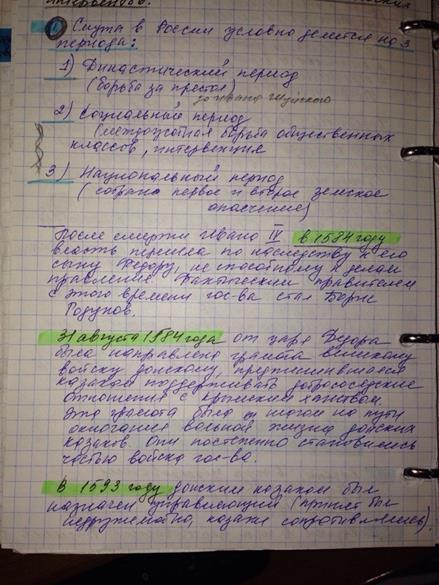 интервенцию.
Смуты в России условно делется на 3
периода:
1) Династический период
(борьба за престол)
до Ивана Шуйского
2) Социальный период
(междоусобная борьба общественных
классов, интервенция
3) Национальный период
(собрано первое и второе земское
ополчение)
После смерти Ивана IV в 1584 году
власть перешла по наследству к его
сыну Федору, не способному к делам
правления. Фактическим правителем
с этого времени гос-ва стал Борис
Годунов.
31 августа 1584 года от царя Федора
была направлена грамота великому
войску донскому, предписывавшая
казакам поддерживать добрососедские
отношения с крымским ханством.
Эта грамота была шагом на пути
окончания вольной жизни донских
казаков. Они постепенно становились
частью войска гос-ва.
В 1593 году донским казакам был
назначен управляющий (принят был
недружелюбно, казаки сопротивлялись)